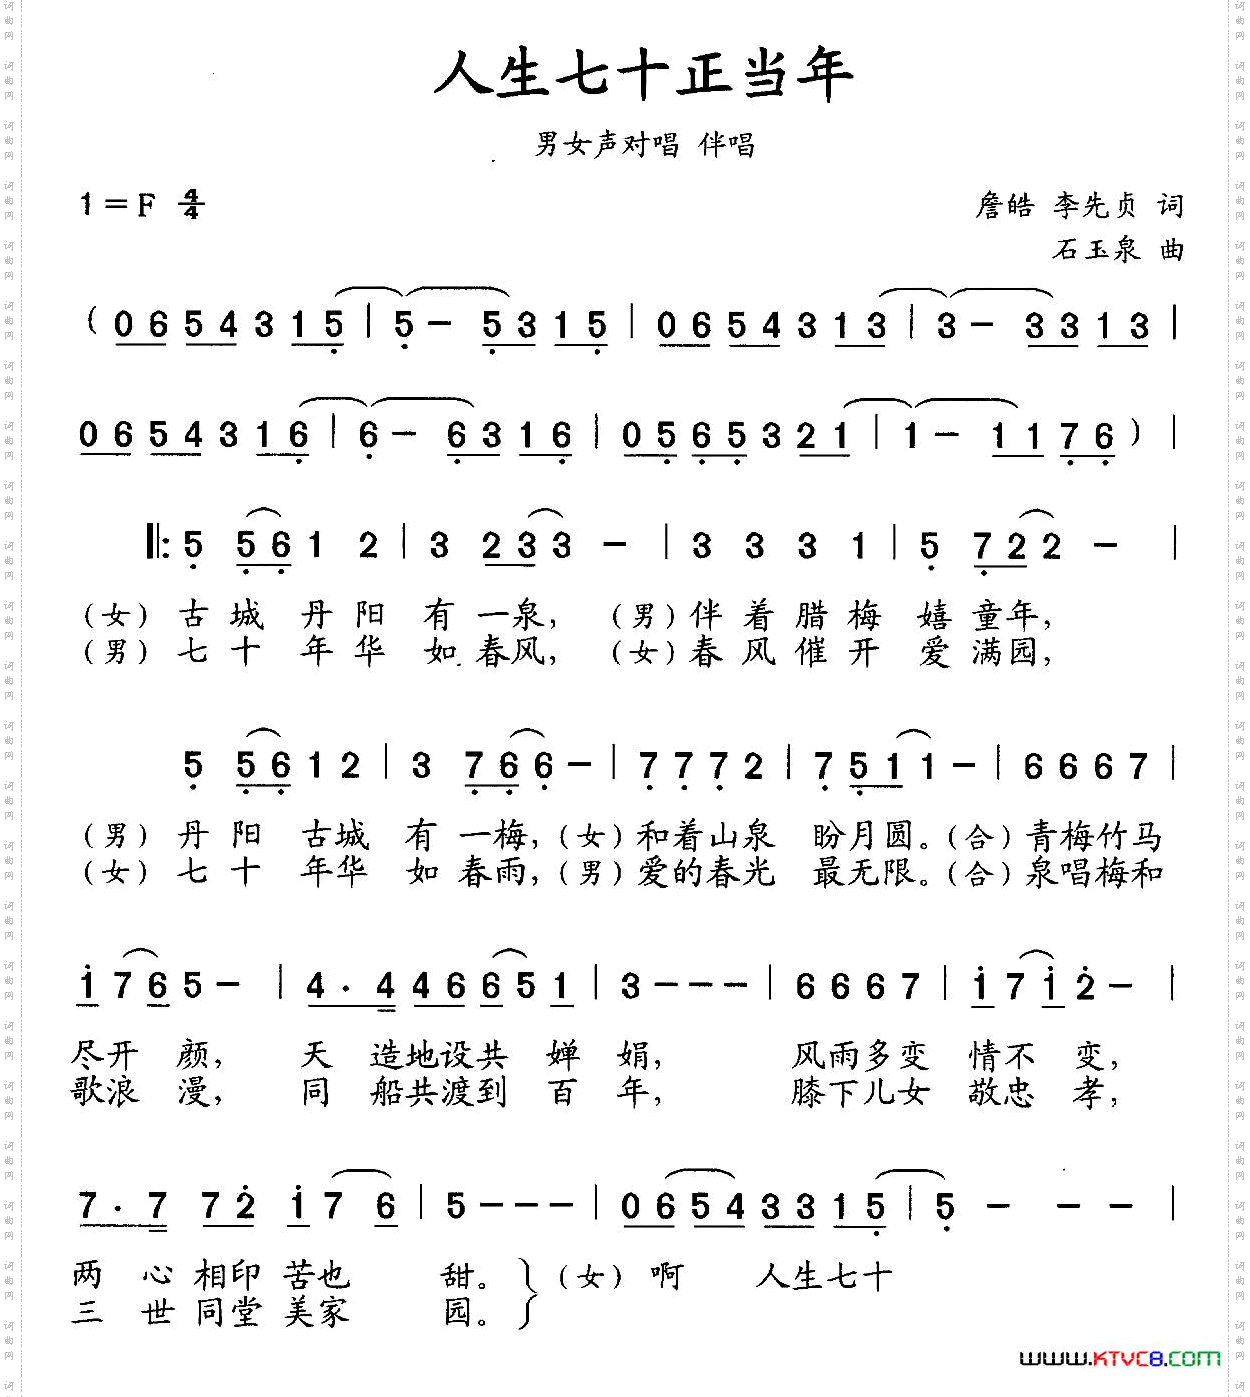 人生七十正当年
男女声对唱 伴唱
1=F 4/4
詹皓 李先贞 词
石玉泉 曲
(0 6 5 4 3 1 5 | 5 - 5 3 1 5 | 0 6 5 4 3 1 3 | 3 - 3 3 1 3 |
0 6 5 4 3 1 6 | 6 - 6 3 1 6 | 0 5 6 5 3 2 1 | 1 - 1 1 7 6 ) |
‖: 5 5 6 1 2 | 3 2 3 3 - | 3 3 3 1 | 5 7 2 2 - |
(女) 古城丹阳有一泉, (男) 伴着腊梅嬉童年,
(男) 七十年华如春风, (女) 春风催开爱满园,
5 5 6 1 2 | 3 7 6 6 - | 7 7 7 2 | 7 5 1 1 - | 6 6 6 7 |
(男) 丹阳古城有一梅, (女) 和着山泉盼月圆。(合) 青梅竹马
(女) 七十年华如春雨, (男) 爱的春光最无限。(合) 泉唱梅和
1 7 6 5 - | 4 . 4 4 6 6 5 1 | 3 - - - | 6 6 6 7 | 1 7 1 2 - |
尽开颜, 天造地设共婵娟, 风雨多变情不变,
歌浪漫, 同船共渡到百年, 膝下儿女敬忠孝,
7 . 7 7 2 1 7 6 | 5 - - - | 0 6 5 4 3 3 1 5 | 5 - - - |
两心相印苦也甜。 (女) 啊 人生七十
三世同堂美家园。
www.KTVC8.com